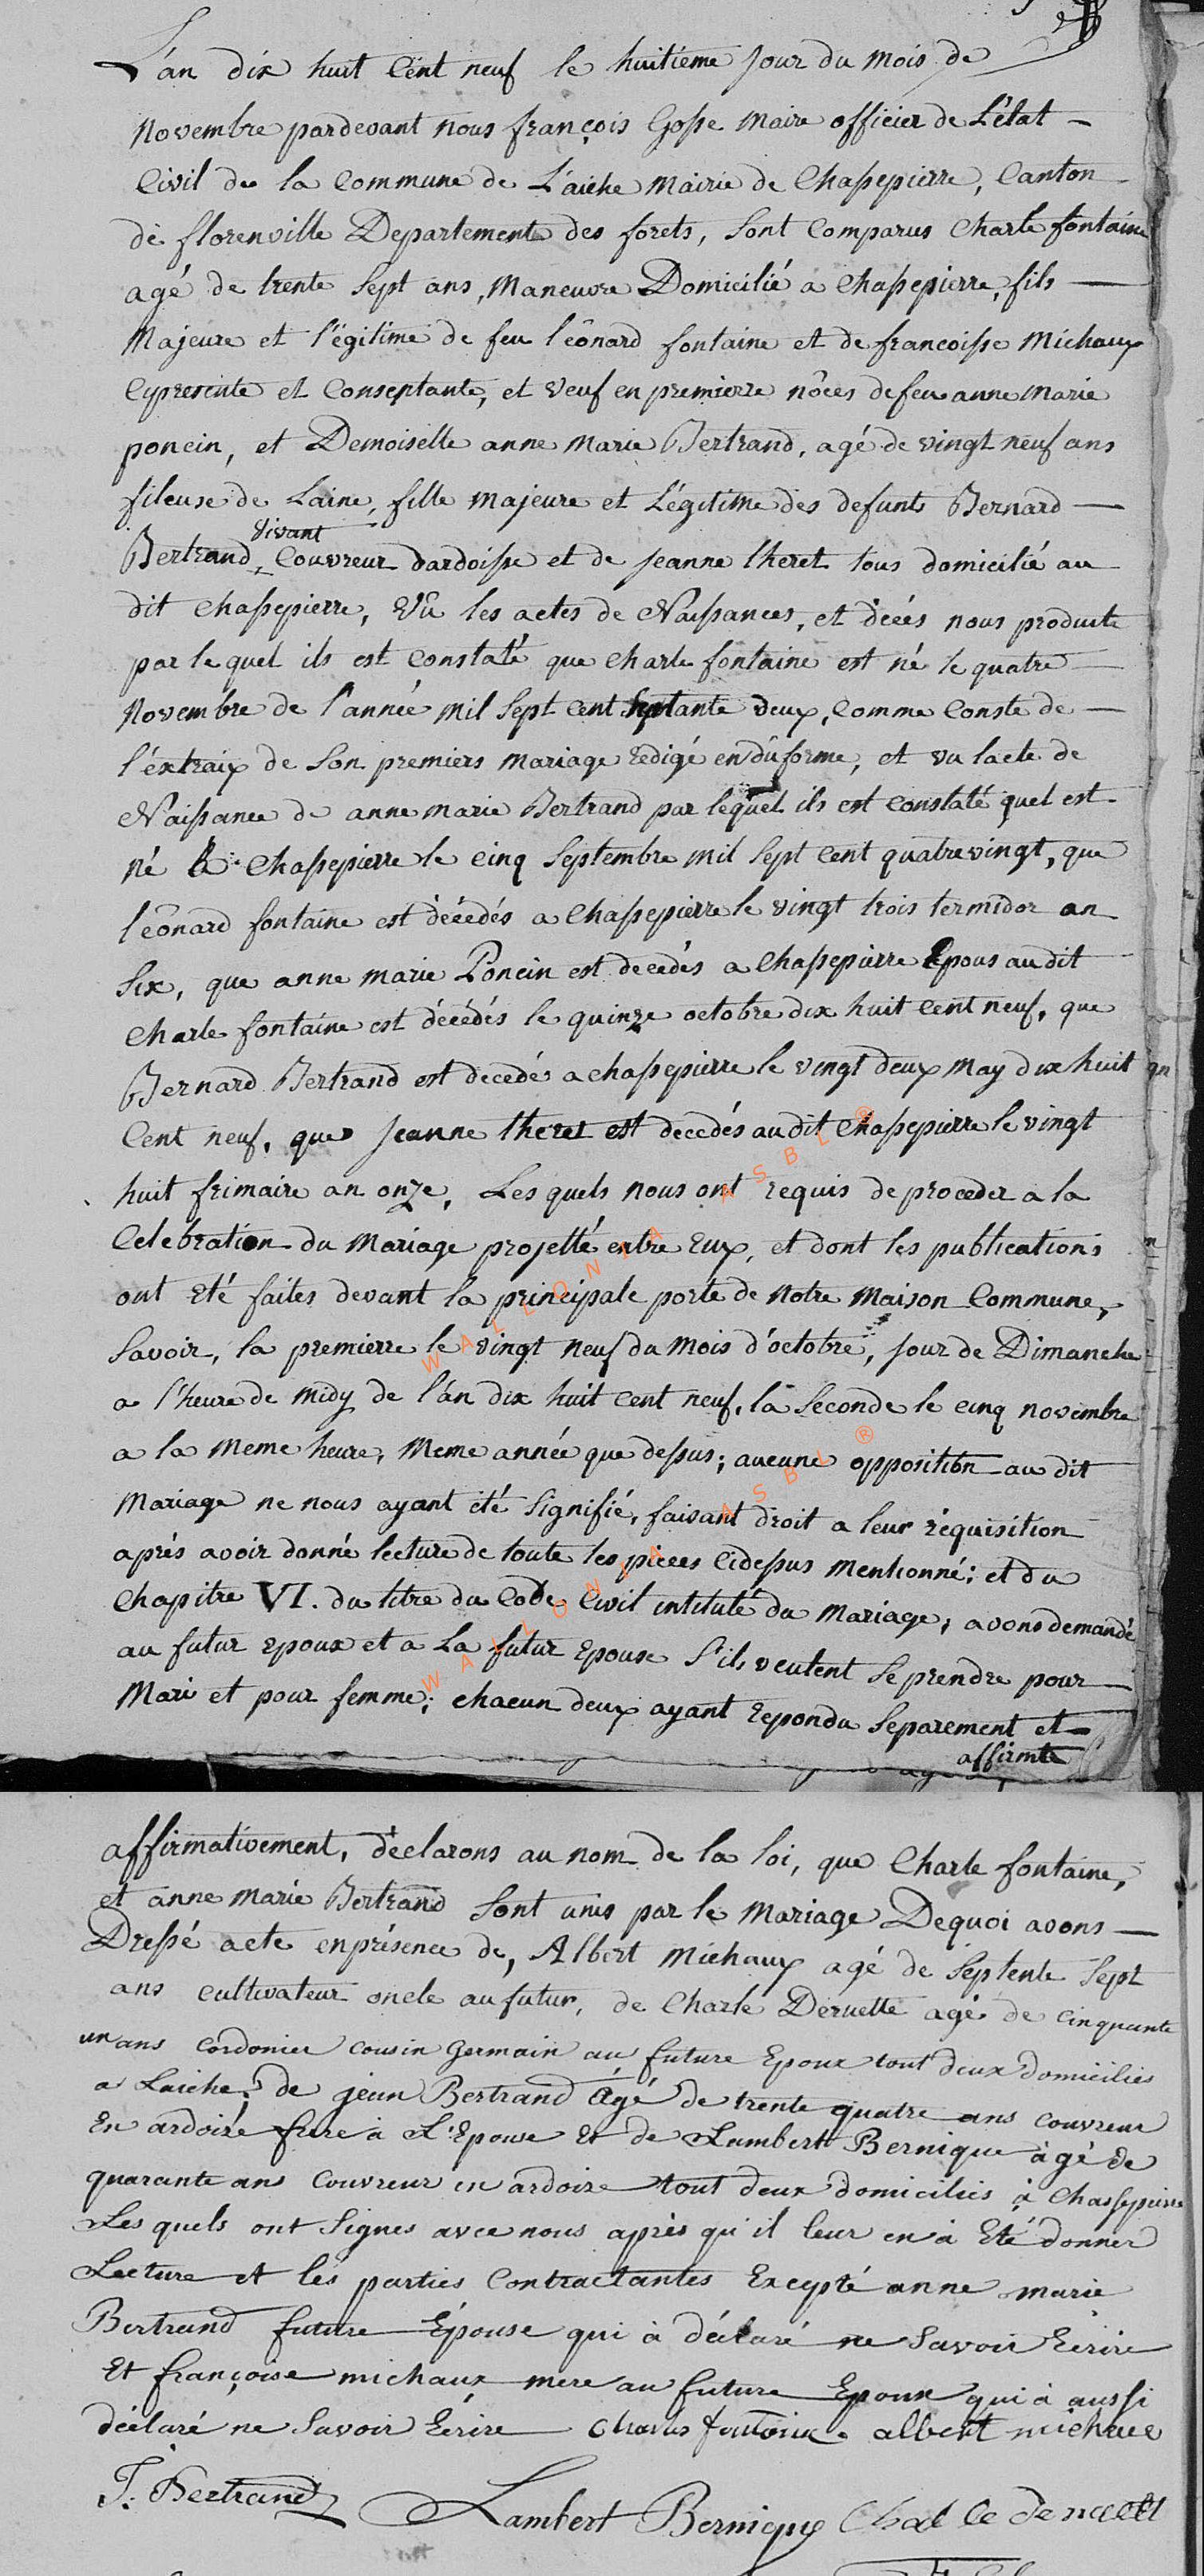 L'an dix huit Cent neuf le huitième Jour du Mois de
Novembre pardevant nous françois Gosse Maire officier de L'état
Civil de la Commune de L'aiche Mairie de Chassepierre, Canton
de florenville Departement des forets, Sont Comparus Charle fontaine
agé de trente Sept ans, Maneuvre Domicilié a Chassepierre, fils
Majeure et légitime de feu léonard fontaine et de francoisse Michaux
Cypresente et Conseptante, et Veuf en premierre nôces de feu anne Marie
poncin, et Demoiselle anne Marie Bertrand, agé de vingt neuf ans
fileuse de Laine, fille Majeure et Légitime des defunts Bernard
vivant
Bertrand, Couvreur dardoisse et de Jeanne theret tous domicilié au
dit Chassepierre, Vû les actes de Naissances, et décés nous produite
par lequel ils est Constaté que Charle fontaine est né le quatre
Novembre de l'année Mil Sept Cent Septante deux, Comme Conste de
l'éxtraix de Son premiers Mariage redigé en dûforme, et vu lacte de
Naissance de anne marie Bertrand par lequel ils est Constaté quel est
né à Chassepierre le Cinq Septembre Mil Sept Cent quatrevingt, que
léonard fontaine est décédés a Chassepierre le vingt trois termidor an
Six, que anne marie Poncin est decedés a Chassepierre Epous au dit
Charle fontaine est décédés le quinze octobre dix huit Cent neuf, que
Bernard Bertrand est decedés a chassepierre le vingt deux May dix huit
Cent neuf, que Jeanne theret est decedés au dit Chassepierre le vingt
huit frimaire an onze, Lesquels nous ont requis de proceder a la
Celebration du Mariage projetté entre Eux, et dont les publications
ont Eté faites devant la principale porte de Notre Maison Commune,
Savoir, la premierre le vingt neuf du Mois d'octobre, Jour de Dimanche
a l'heure de midy de l'an dix huit Cent neuf, la Seconde le Cinq novembre
a la Meme heure, Meme année que dessus; aucune opposition au dit
Mariage ne nous ayant été Signifié, faisant droit a leur réquisition
après avoir donné lecture de toute les pieces Cidessus mentionné; et du
Chapitre VI. du titre du Code Civil intitulé du Mariage; avons demandé
au futur epoux et a La futur Epouse S'ils veulent Se prendre pour
Mari et pour femme; chacun deux ayant repondu Separement et
affirmte
affirmativement, déclarons au nom de la loi, que Charle fontaine,
et anne Marie Bertrand Sont unis par le Mariage Dequoi avons
Dressé acte en présence de, Albert Michaux agé de Septente Sept
ans cultivateur oncle au futur, de Charle Deruette agé de cinquante
un ans cordonier cousin germain au future Epoux tout deux domiciliés
a Laiche; de jean Bertrand Agé de trente quatre ans couvreur
En ardoire frere à L'Epouse Et de Lambert Bernique âgé de
quarante ans couvreur en ardoire tout deux domiciliés à Chassepierre
Lesquels ont Signes avec nous après qu'il leur en à Eté donner
Lecture et les parties Contractantes Excepté anne marie
Bertrand future Épouse qui à déclaré ne Savoir Ecrire
Et françoise michaux mere au future Epoux qui à aussi
déclaré ne Savoir Ecrire Charles fontaine albert michaux
J. Bertrand Lambert Bernique
WALLONIA ASBL ®
WALLONIA ASBL ®